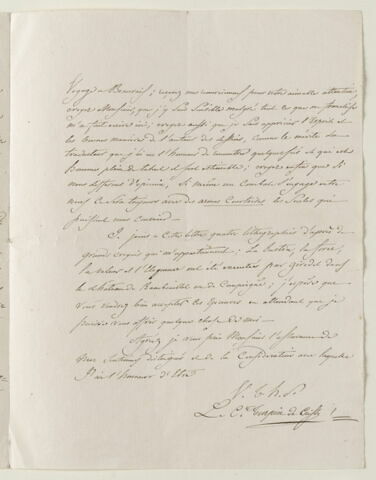 Voyage à Beauvais; recevez mes remerciements pour votre aimable attention,
croyez Monsieur, que j'y suis sensible malgré tout ce que ma franchise
m'a fait écrire ici; croyez aussi que je sais apprécier l'esprit et
les bonnes manières de l'auteur des lettres, comme le mérite du
traducteur que j'ai eu l'honneur de rencontrer quelquefois et qui est
homme plein de talent et fort aimable; croyez enfin que si
nous différons d'opinion, si même un combat s'engage entre
nous ce sera toujours avec des armes courtoises, les seules qui
puissent nous convenir.
Je joins à cette lettre quatre lithographies d'après de
grands croquis qui m'appartiennent; la Justice, la force,
la valeur et l'Eloquence ont été exécutés par girodet dans
le château de Compiègne; j'espère que
vous voudrez bien accepter ces épreuves en attendant que je
puisse vous offrir quelque chose de moi.
Agréez je vous prie Monsieur l'assurance de
mes sentimens distingués et de la considération avec laquelle
J'ai l'honneur d'être
V. t. h. S.
Le Cte Turpin de Crissé